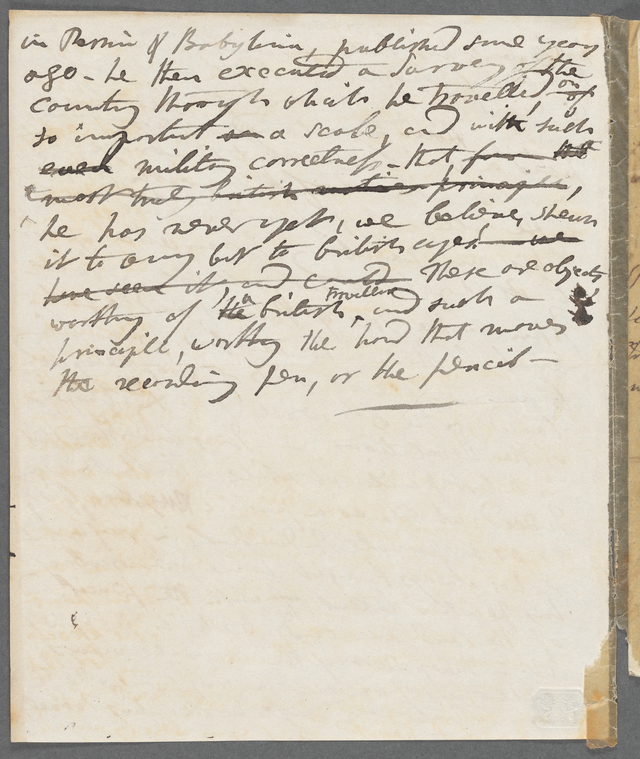 in Persia & Babylonia, published some years
ago - he then executed a Survey of the
Country through which he travelled, on of
so important an a scale, and with such
even military correctness - that from that
most truly british motives principle,
he has never yet, we believe, shewn
it to any but to british eyes! we
have seen it, and could These are objects
worthy of the a british Traveller, and such a
principle, worthy the hand that moves
the recording pen, or the pencil -